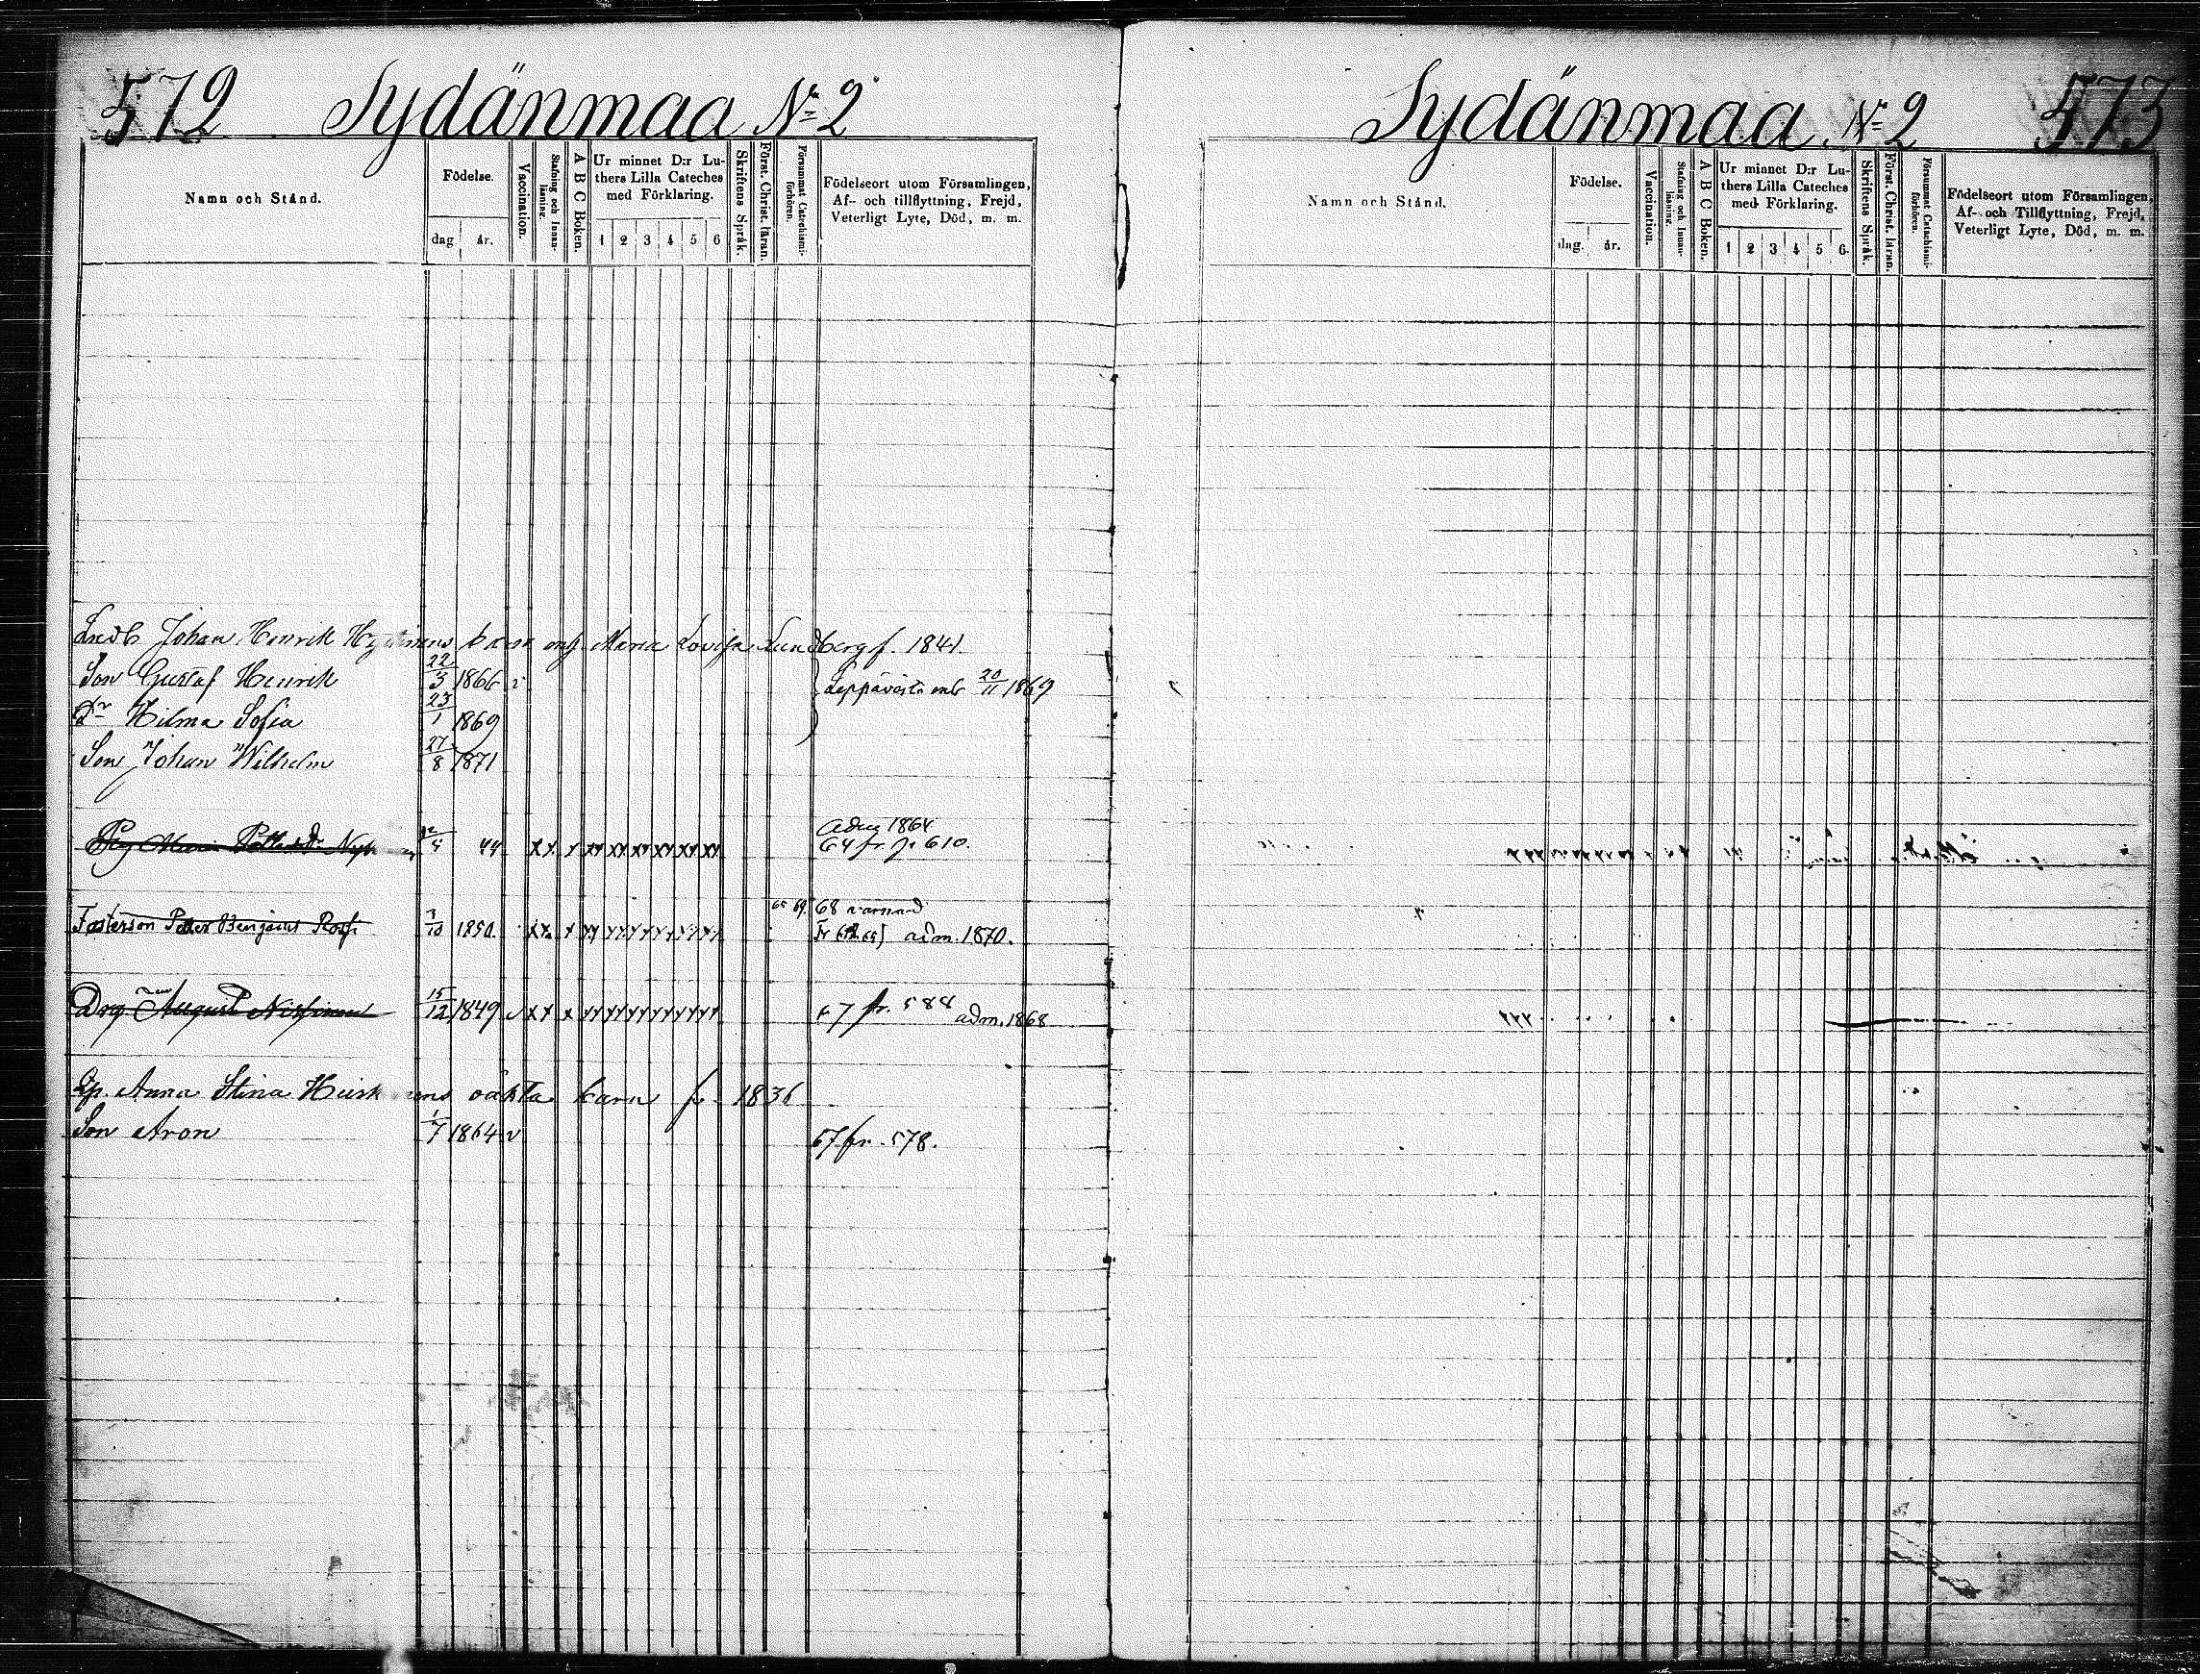 572 Sydänmaa No 2
Namn och Stånd.
Födelse.
dag
år.
Vaccination.
Stafning och Innan-
läsning.
A B C Boken.
Ur minnet D:r Lu-
thers Lilla Cateches
med Förklaring.
1 2 3 4 5 6
Skriftens Språk.
Först. Christ. läran.
Försummat Catechismi-
förhören.
Födelseort utom Församlingen,
Af- och tillflyttning, Frejd,
Veterligt Lyte, Död, m. m.
Johan Henrik barn Maria Lovisa Lundberg f. 1841.
Son Gustaf Henrik 22/3 1866 Leppävirta 20/11 1869
Dr Hilma Sofia 23/1 1869
Son Johan Wilhelm 27/8 1871
Maria 44 x x x xx xx xx xx xx xx 1864
64 fr. p 610.
69. 68
Fosterson Peter Benjamin /10 1850. adm. 1870.
Drg August 15/12 1849 67 fr. 588 adm. 1868
Anna Stina oäkta barn f. 1836
Son Aron 1/7 1864 v 67 fr. 578.
Sydänmaa No 2 573
Namn och Stånd.
Födelse.
dag.
år.
Vaccination.
Stafning och Innan-
läsning.
A B C Boken.
Ur minnet D:r Lu-
thers Lilla Cateches
med Förklaring.
1 2 3 4 5 6.
Skriftens Språk.
Först. Christ. läran.
Försummat Catechismi-
förhören.
Födelseort utom Församlingen,
Af- och Tillflyttning, Frejd,
Veterligt Lyte, Död, m. m.